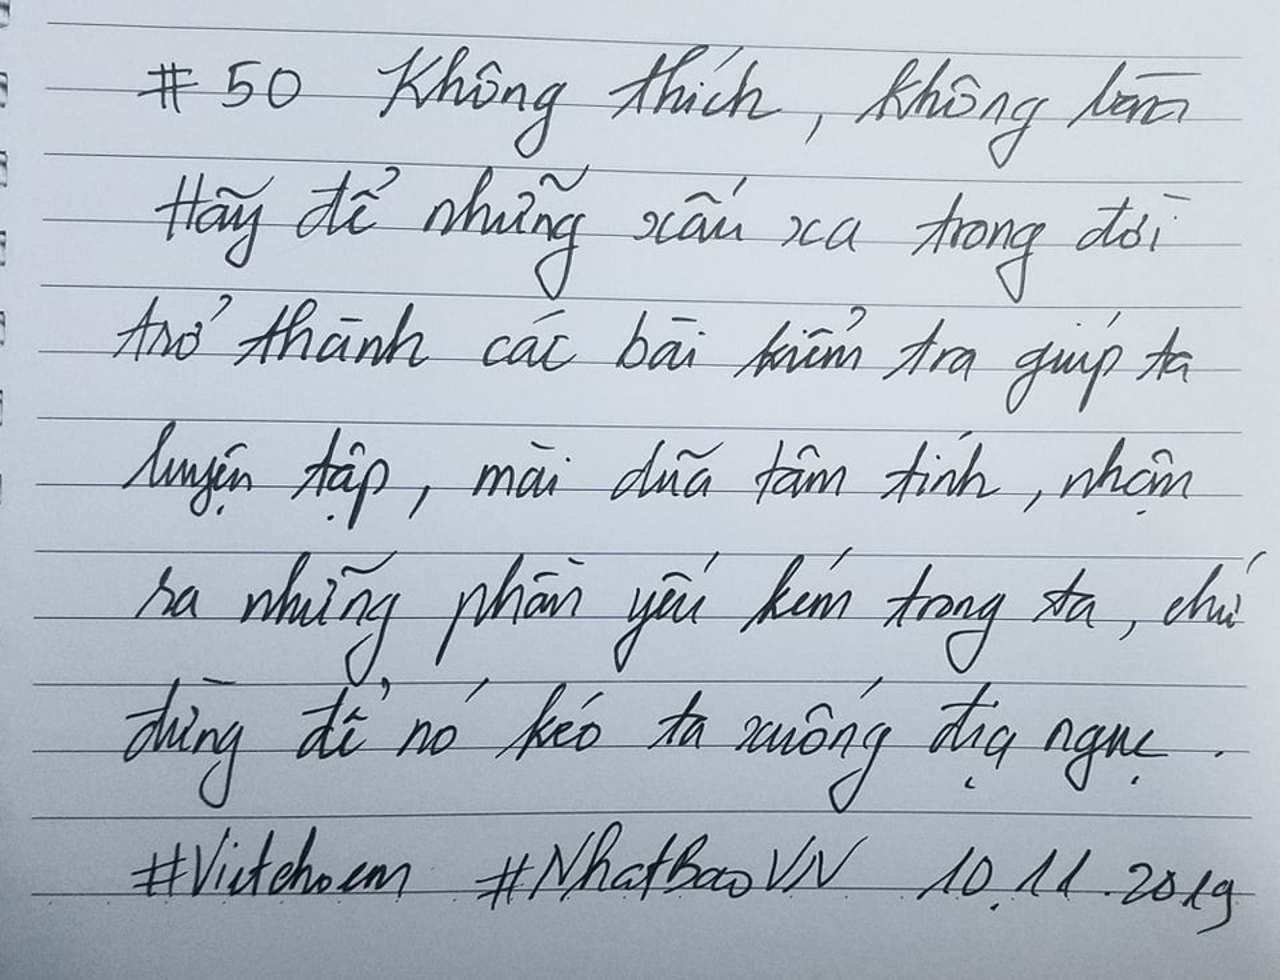 # 50 Không thích, không bàn
Hãy để những xấu xa trong đời
trở thành các bài kiểm tra giúp ta
luyện tập, mài dũa tâm tính, nhận
ra những phần yếu kém trong ta, chứ
đừng để nó kéo ta xuống địa ngục.
#Vietchoem #NhatBaoVN 10.11.2019